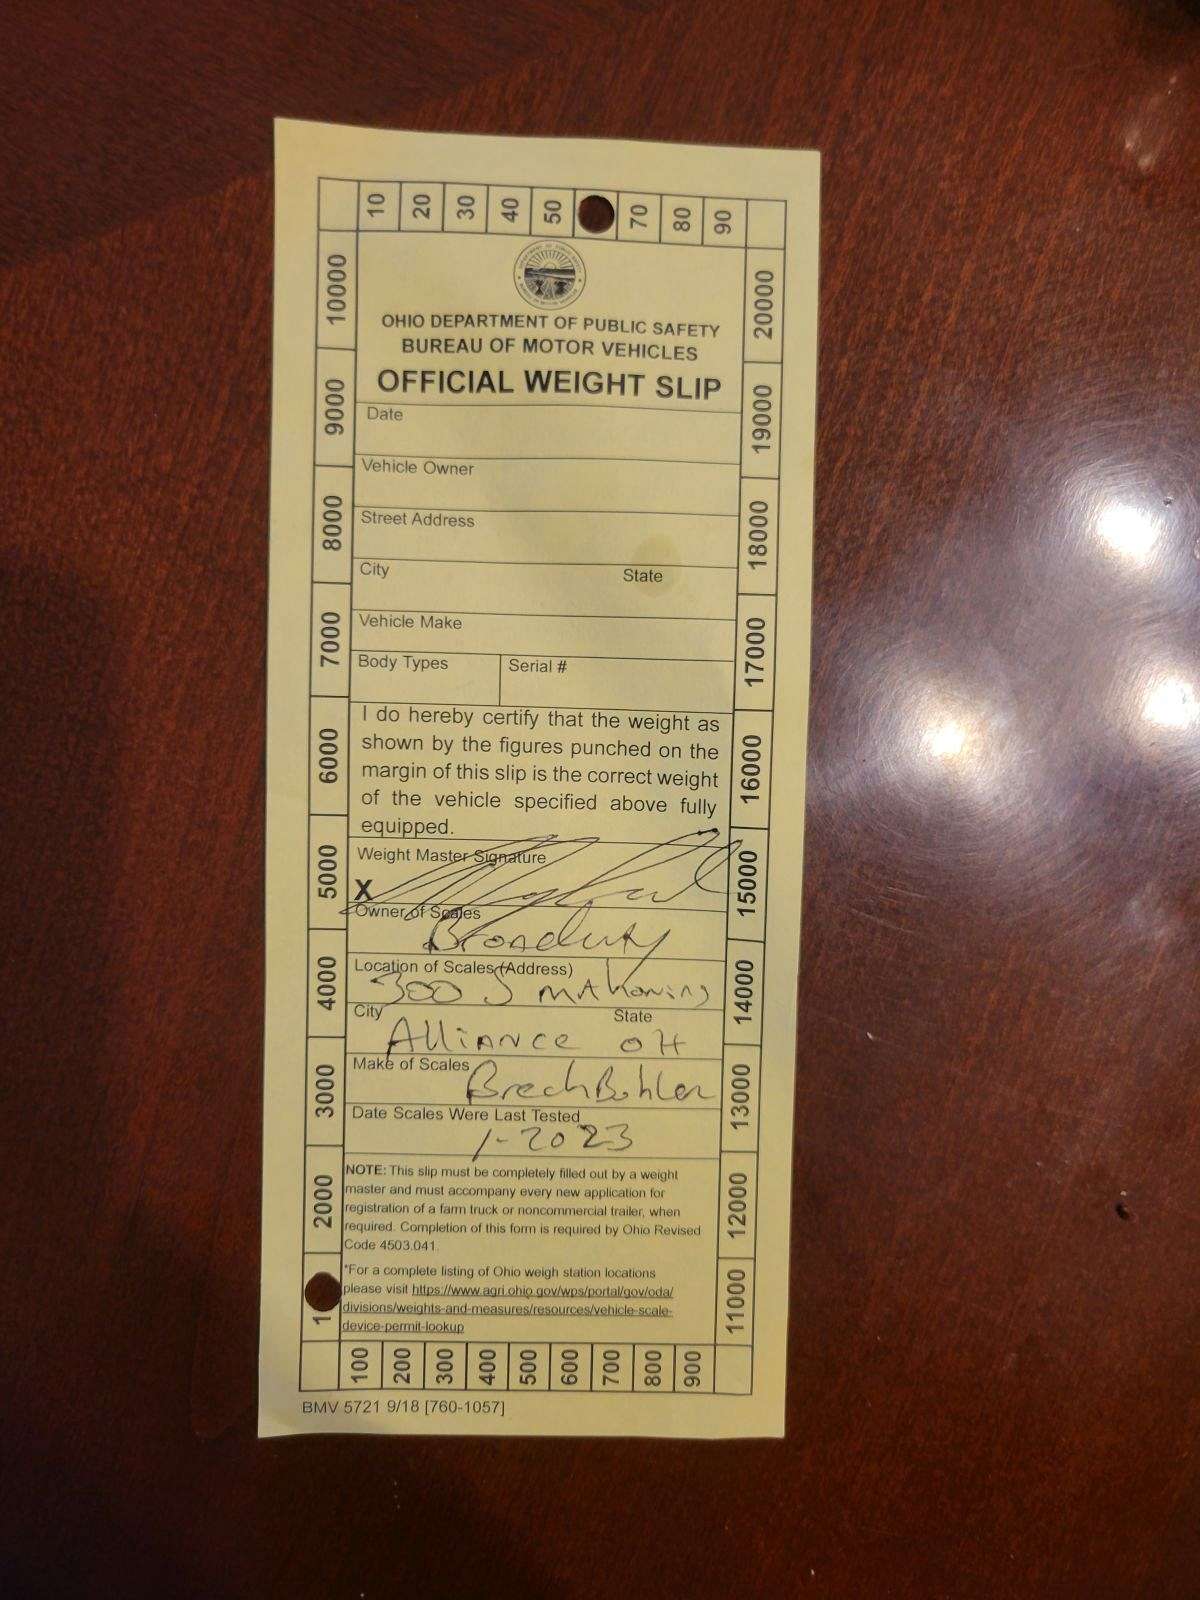 10 20 30 40 50 70 80 90
10000
9000
8000
7000
6000
5000
4000
3000
2000
1
OHIO DEPARTMENT OF PUBLIC SAFETY
BUREAU OF MOTOR VEHICLES
OFFICIAL WEIGHT SLIP
Date
Vehicle Owner
Street Address
City State
Vehicle Make
Body Types Serial #
I do hereby certify that the weight as
shown by the figures punched on the
margin of this slip is the correct weight
of the vehicle specified above fully
equipped.
Weight Master Signature
X
Owner of Scales
Broadway
Location of Scales (Address)
300 S MAhoning
City State
Alliance OH
Make of Scales
BrechBuhler
Date Scales Were Last Tested
1-2023
NOTE: This slip must be completely filled out by a weight
master and must accompany every new application for
registration of a farm truck or noncommercial trailer, when
required. Completion of this form is required by Ohio Revised
Code 4503.041.
*For a complete listing of Ohio weigh station locations
please visit https://www.agri.ohio.gov/wps/portal/gov/oda/
divisions/weights-and-measures/resources/vehicle-scale-
device-permit-lookup
20000
19000
18000
17000
16000
15000
14000
13000
12000
11000
100 200 300 400 500 600 700 800 900
BMV 5721 9/18 [760-1057]